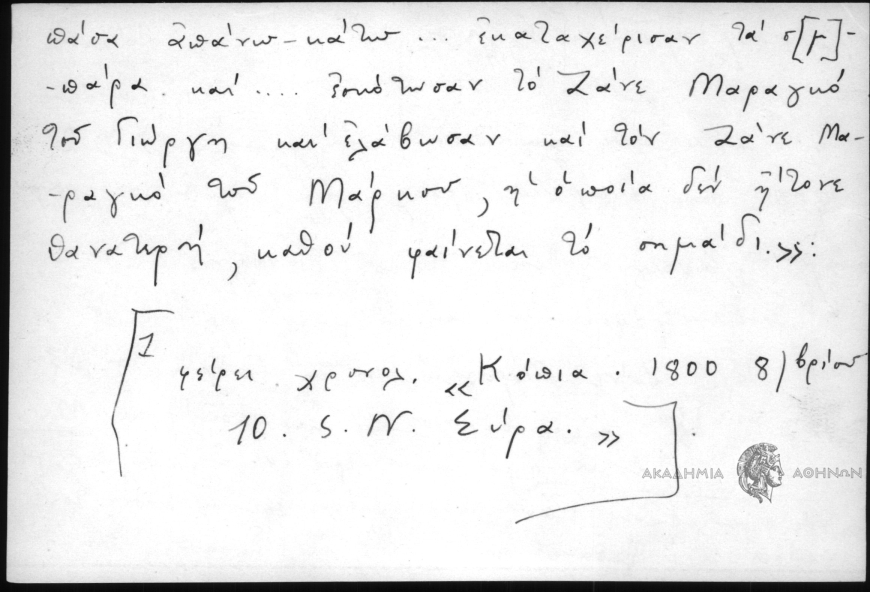 πάσα ἀπάνω-κάτω ... ἐκαταχείρισαν τά σ[μ]-
-πάρα. καί .... ἐσκότωσαν τό Ζάνε Μαραγκό
τοῦ Γιώργη καί ἐλάβωσαν καί τόν Ζάνε Μα-
-ραγκό τοῦ Μάρκου, ἡ ὁποία δέν ἤτονε
θανατερή, καθού φαίνεται τό σημάδι.»:
1
φέρει χρονολ. «Κόπια. 1800 8)βρίου
10. S. N. Σύρα.»
ΑΚΑΔΗΜΙΑ ΑΘΗΝΩΝ